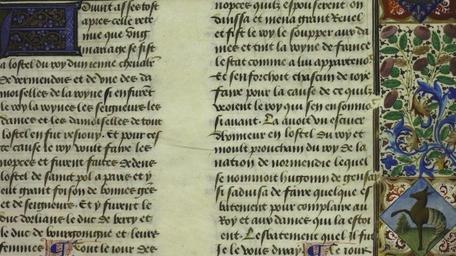 Avint assés tost
apres celle rete
nue que Ung
mariage se fist
a lostel du roy dun ienne cheualr
de vermendois et de vne des da
moiselles de la royne si en furent
le roy la royne les seigneurs les
dames et les damoiselles de tout
lostel en fut resiouy. et pour ces
te cause le roy voult faire les
nopces et furent faictes dedens
lostel de saint pol a paris et y
eut grant foison de bonnes gens
et de seigneurs. Et y furent le
duc dorliens le duc de berry et
le duc de bourgoingne et leurs
femmes Tout le iour des
nopces quilz espouserent on
danssa et mena grant Reuel
et fist le roy le soupper aux da
mes et tint la royne de france
lestat comme a lui appartenoit
Et sen forchoit chascun de ioye
faire pour la cause de ce quilz
veoient le roy qui sen ensonnie
si auant. La auoit vn escuier
dhonneur en lostel du roy et
moult prouchain du roy de la
nation de normendie lequel
se nommoit hugonin de gensay
si saduisa de faire quelque es
batement pour complaire au
Roy et aux dames qui la estoi
ent. Lesbatement quel il fut
Je le vous diray. Le iour